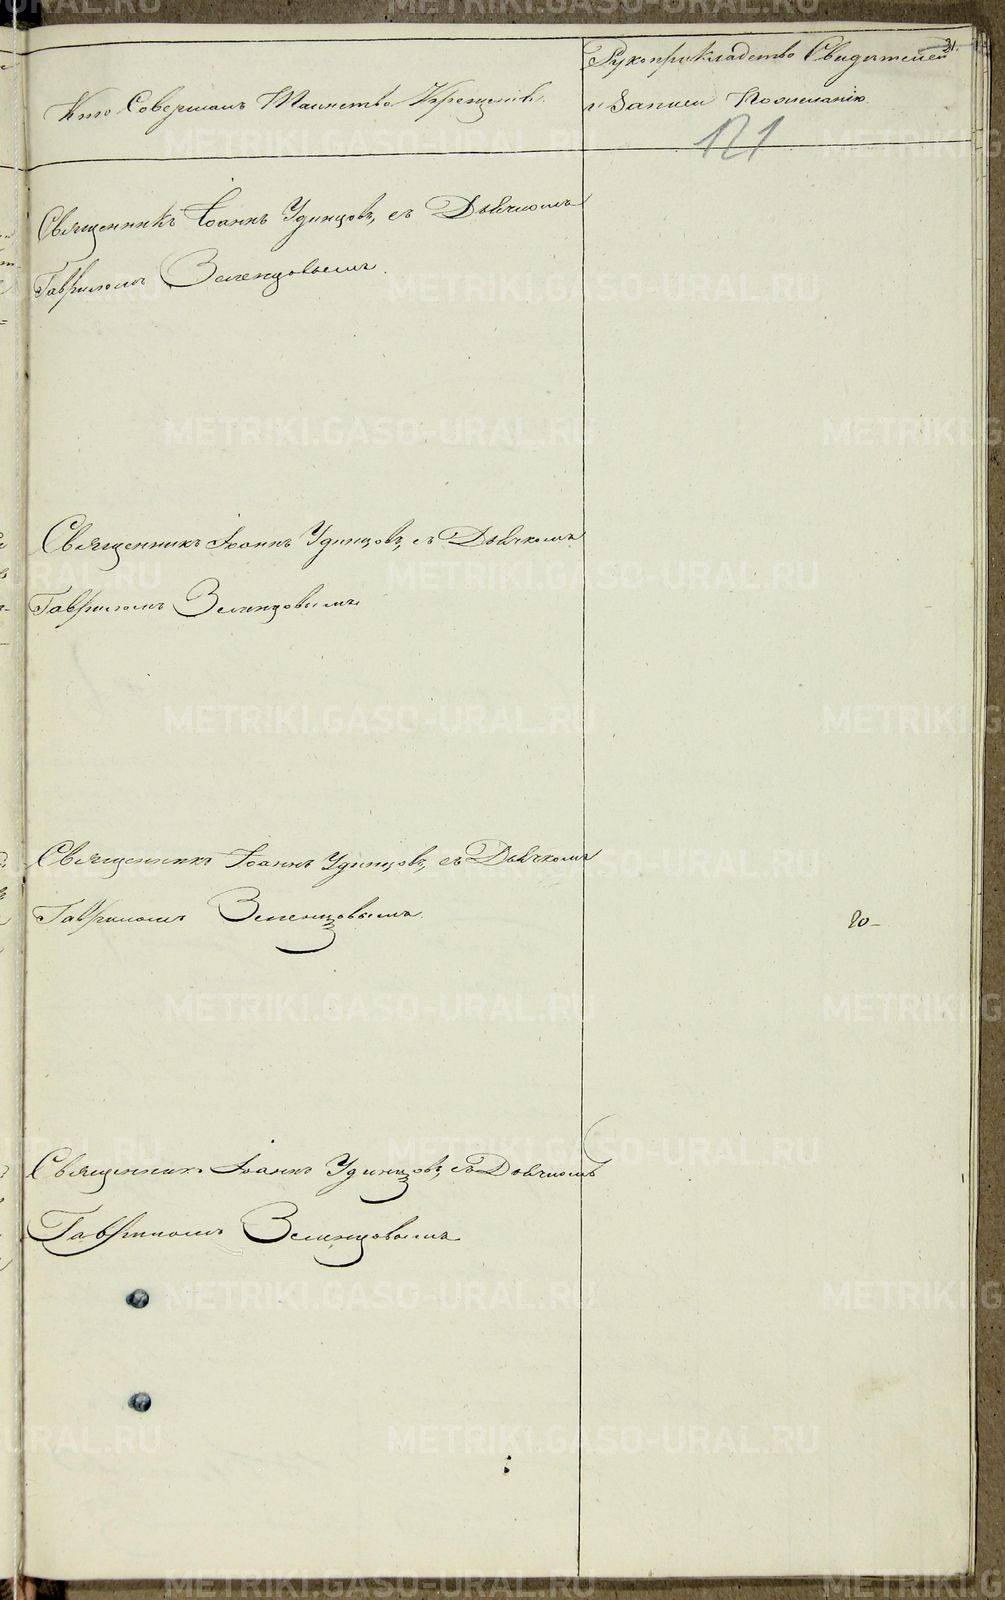 31.
Рукоприкладство Свидѣтелей
Кто Совершалъ Таинство Крещенія.
и Записи По желанію.
121
Священникъ Іоаннъ Удинцовъ, съ Дьячкомъ
Гавриломъ Зеленцовымъ.
Священникъ Іоаннъ Удинцовъ, съ Дьячкомъ
Гавриломъ Зеленцовымъ.
Священникъ Іоаннъ Удинцовъ, съ Дьячкомъ
Гавриломъ Зеленцовымъ.
20-
Священникъ Іоаннъ Удинцовъ, съ Дьячкомъ
Гавриломъ Зеленцовымъ.
METRIKI.GASO-URAL.RU